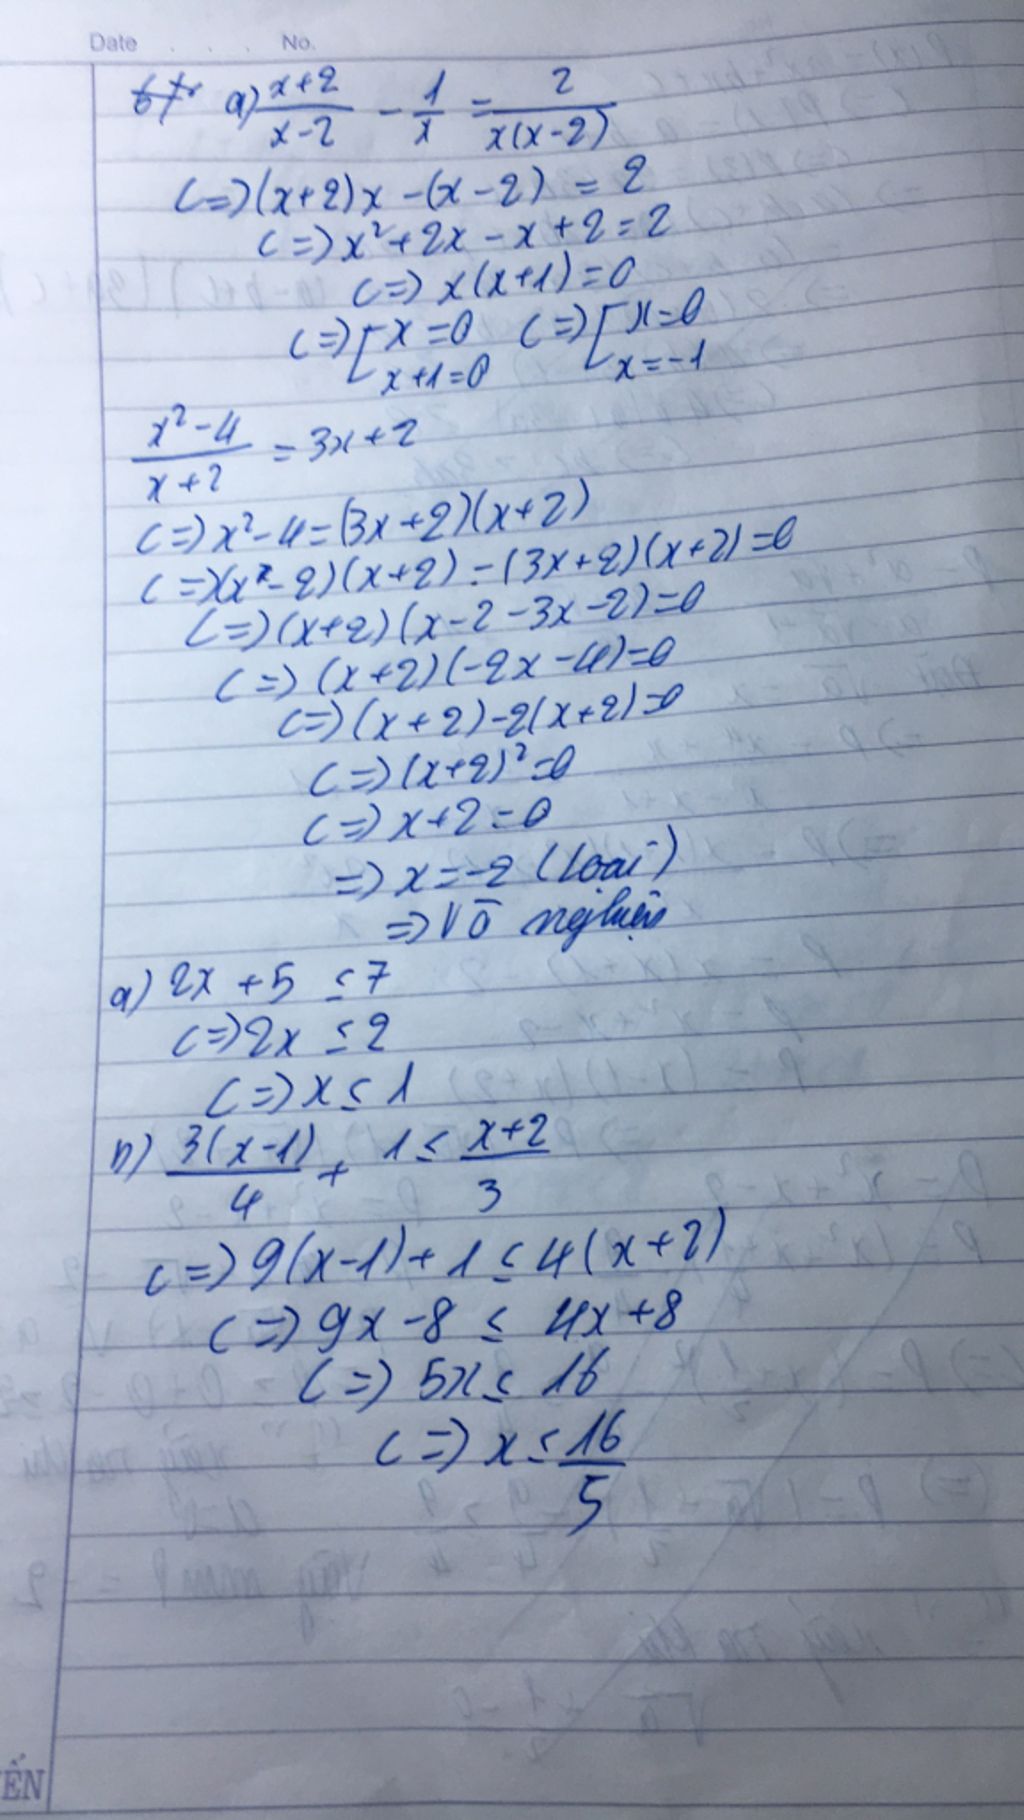 Date . . . No.
a) x+2/x-2 - 1/x = 2/x(x-2)
<=> (x+2)x - (x-2) = 2
<=> x² + 2x - x + 2 = 2
<=> x(x+1) = 0
<=> [x = 0 <=> [x = 0
x+1 = 0 x = -1
x² - 4/x + 2 = 3x + 2
<=> x² - 4 = (3x + 2)(x + 2)
<=> (x - 2)(x + 2) - (3x + 2)(x + 2) = 0
<=> (x + 2)(x - 2 - 3x - 2) = 0
<=> (x + 2)(-2x - 4) = 0
<=> (x + 2) - 2(x + 2) = 0
<=> (x + 2)² = 0
<=> x + 2 = 0
=> x = -2 (loại)
=> Vô nghiệm
a) 2x + 5 ≤ 7
<=> 2x ≤ 2
<=> x ≤ 1
b) 3(x-1)/4 + 1 ≤ x+2/3
<=> 9(x-1) + 1 ≤ 4(x+2)
<=> 9x - 8 ≤ 4x + 8
<=> 5x ≤ 16
<=> x ≤ 16/5
ẾN